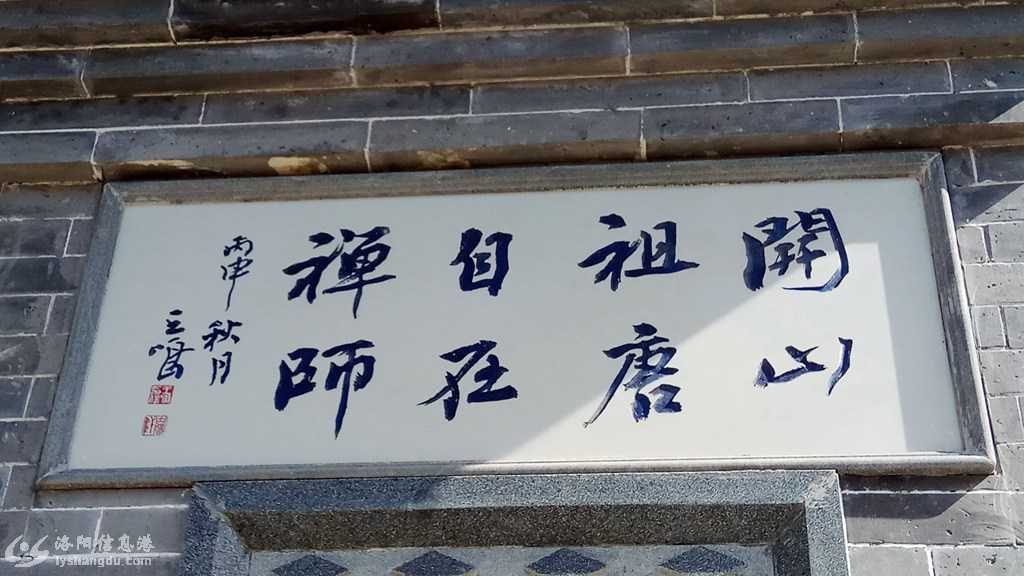 開山
祖唐
自在
禪師
丙申
秋月
洛阳信息港
lyshangdu.com